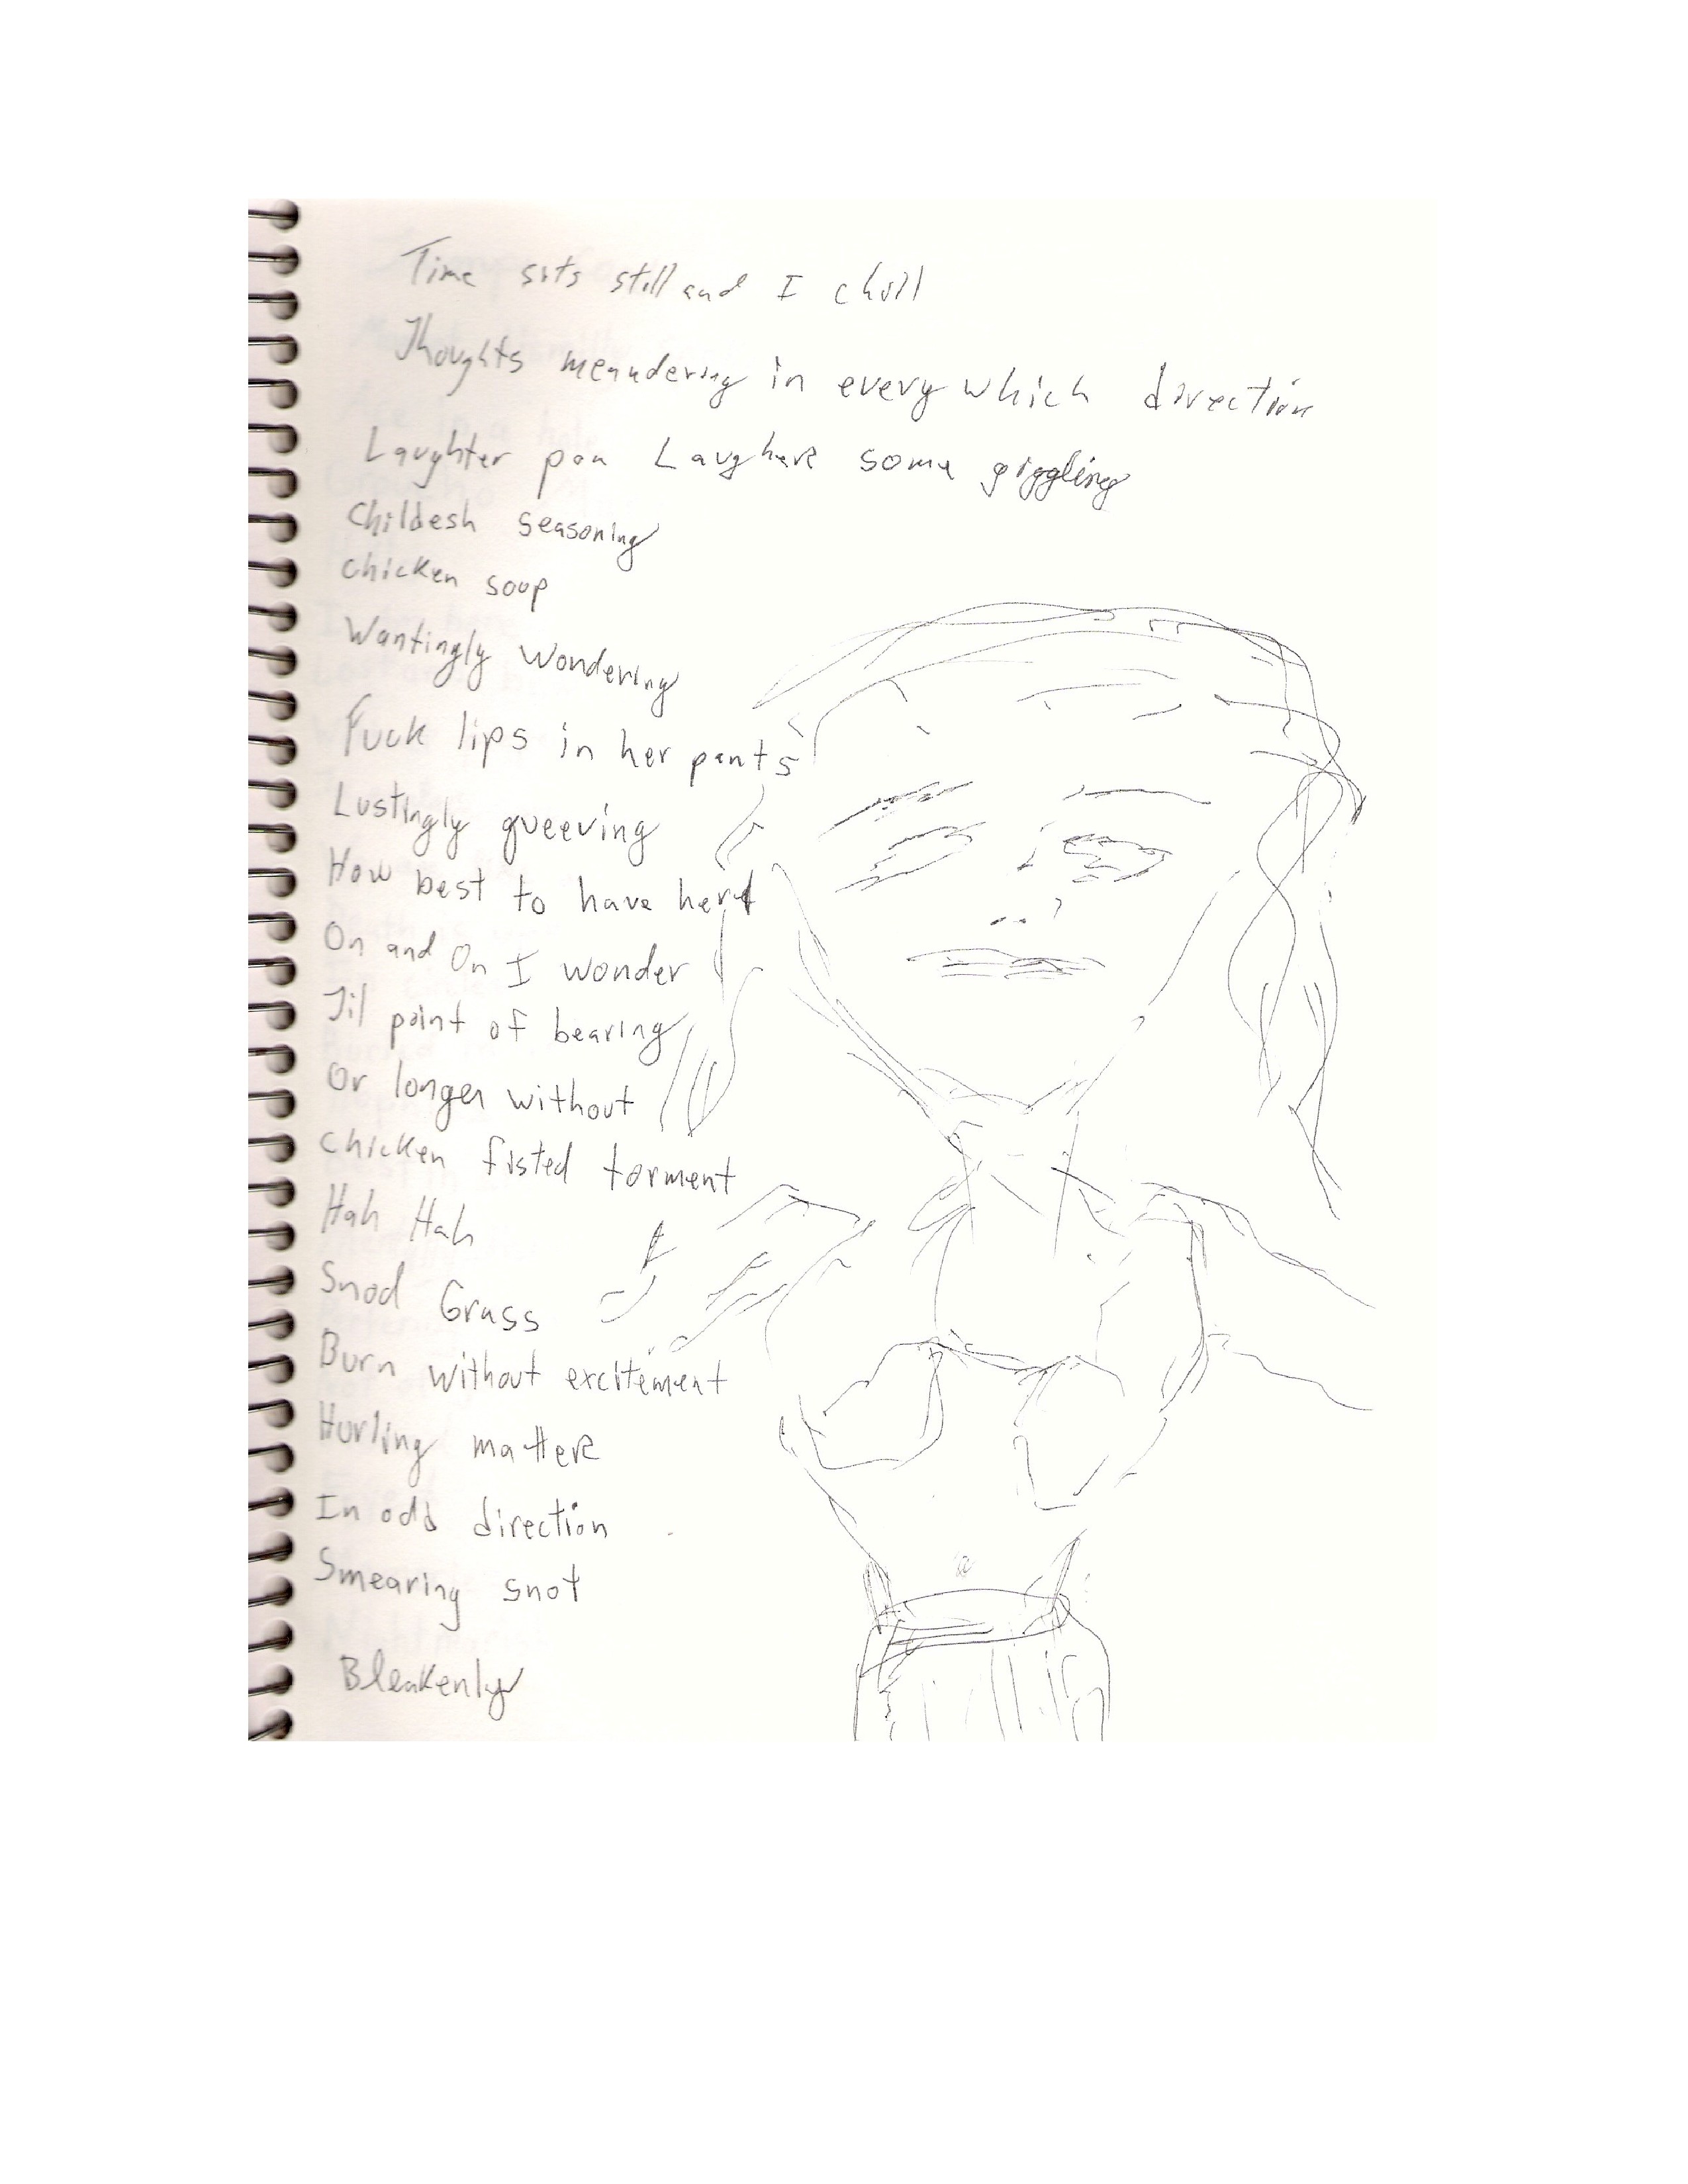 Time sits still and I chill
Thoughts meandering in every which direction
Laughter pon Laugher some giggling
Childesh seasoning
chicken soup
Wantingly Wondering
Fuck lips in her pants
Lustingly queeving
How best to have her
On and On I wonder
Til point of bearing
Or longer without
chicken fisted torment
Hah Hah
Snod Grass
Burn without excitement
Hurling matter
In odd direction
Smearing snot
Bleakenly